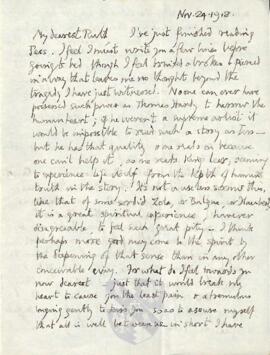 Nov. 24. 1918.
My dearest Ruth I've just finished reading
Tess. I feel I must write you a few lines before
going to bed though I feel bruised & broken & pierced
in a way that leaves me no thoughts beyond the
tragedy I have just witnessed. No one can ever have
possessed such power as Thomas Hardy to harrow the
human heart; if he weren't a supreme artist it
would be impossible to read such a story as Tess –
but he has that quality & one reads on because
one can't help it, as one reads King Lear, seeming
to experience life itself from the depth of human
truth in the story. It's not a useless sorrow this,
like that of some sordid Zola, or Balzac, or Flaubert;
it is a great spiritual experience, however
disagreeable, to feel such great pity. I think
perhaps more good may come to the spirit by
the deepening of that sense than in any other
conceivable way. For what do I feel towards you
now dearest – just that it would break my
heart to cause you the least pain & a tremulous
longing gently to kiss you so as to assure myself
that all is well between us in short I have